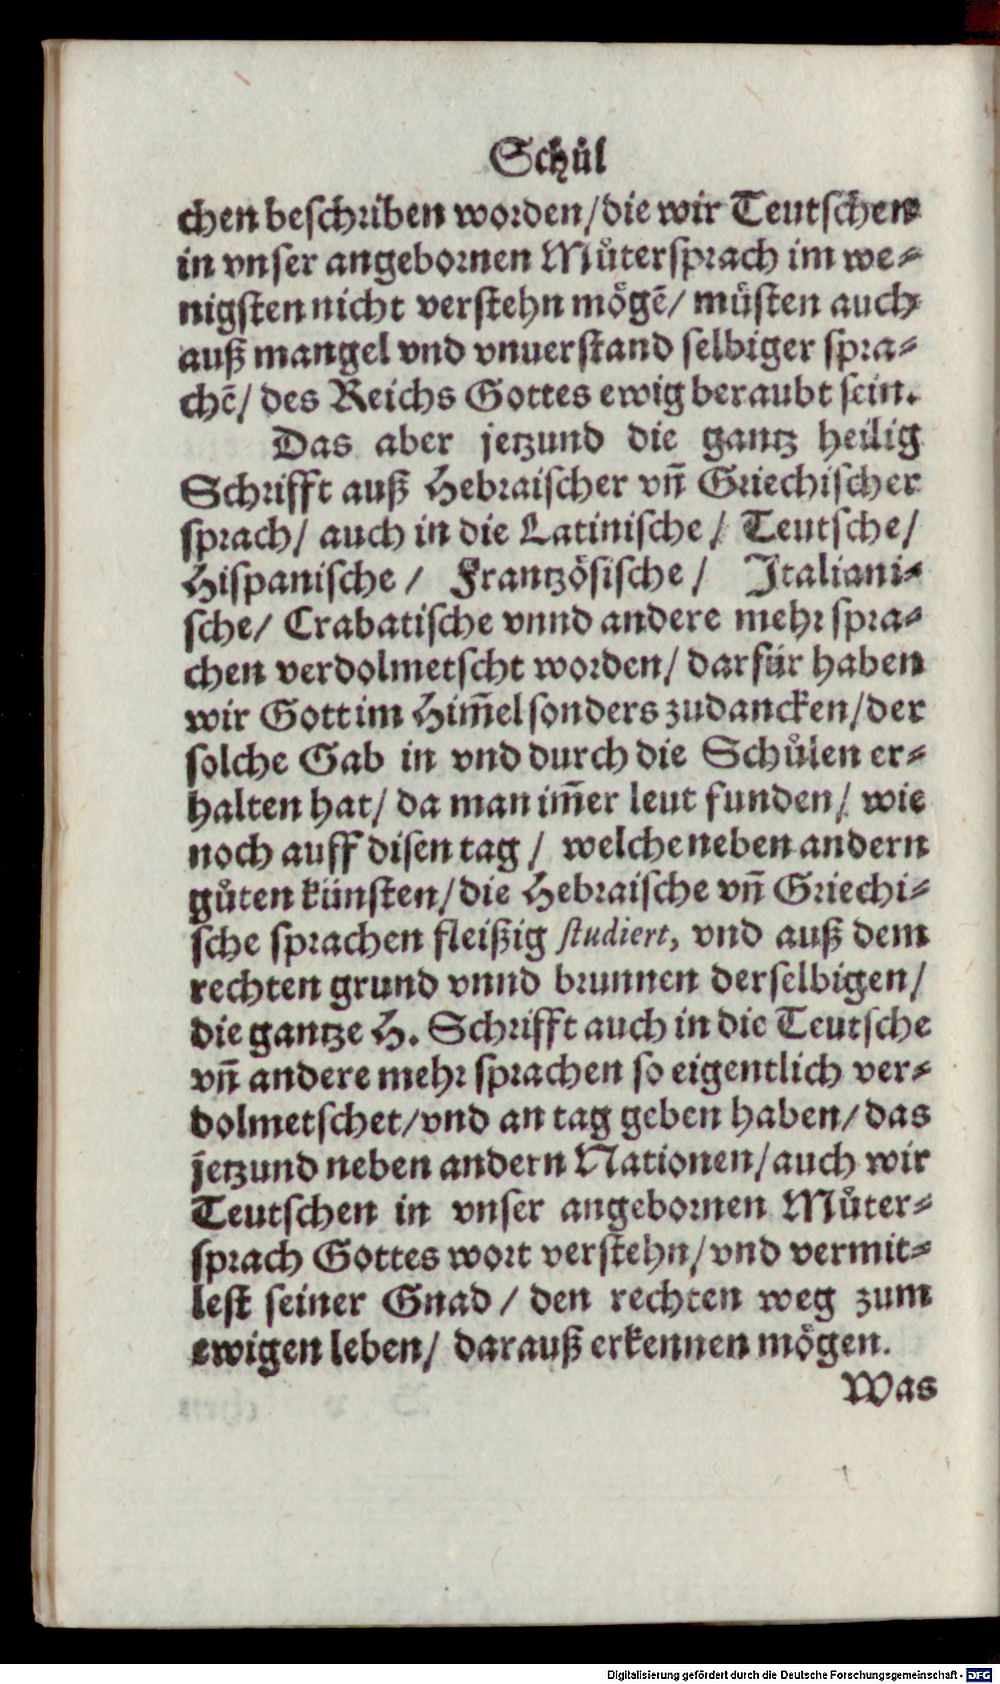 Schůl
chen beschriben worden/die wir Teutschen
in vnser angebornen Můtersprach im we⸗
nigsten nicht verstehn mögē/ müsten auch
auß mangel vnd vnuerstand selbiger spra⸗
chē/ des Reichs Gottes ewig beraubt sein.
Das aber jetzund die gantz heilig
Schrifft auß Hebraischer vn̄ Griechischer
sprach/ auch in die Latinische/ Teutsche/
Hispanische/ Frantzösische/ Italiani⸗
sche/ Crabatische vnnd andere mehr spra⸗
chen verdolmetscht worden/ darfür haben
wir Gott im Him̄el sonders zudancken/der
solche Gab in vnd durch die Schůlen er⸗
halten hat/ da man im̄er leut funden/ wie
noch auff disen tag/ welche neben andern
gůten künsten/die Hebraische vn̄ Griechi⸗
sche sprachen fleißig studiert, vnd auß dem
rechten grund vnnd brunnen derselbigen/
die gantze H. Schrifft auch in die Teutsche
vn̄ andere mehr sprachen so eigentlich ver⸗
dolmetschet/vnd an tag geben haben/das
jetzund neben andern Nationen/auch wir
Teutschen in vnser angebornen Můter⸗
sprach Gottes wort verstehn/vnd vermit⸗
lest seiner Gnad/ den rechten weg zum
ewigen leben/ darauß erkennen mögen.
Was
Digitalisierung gefördert durch die Deutsche Forschungsgemeinschaft - DFG